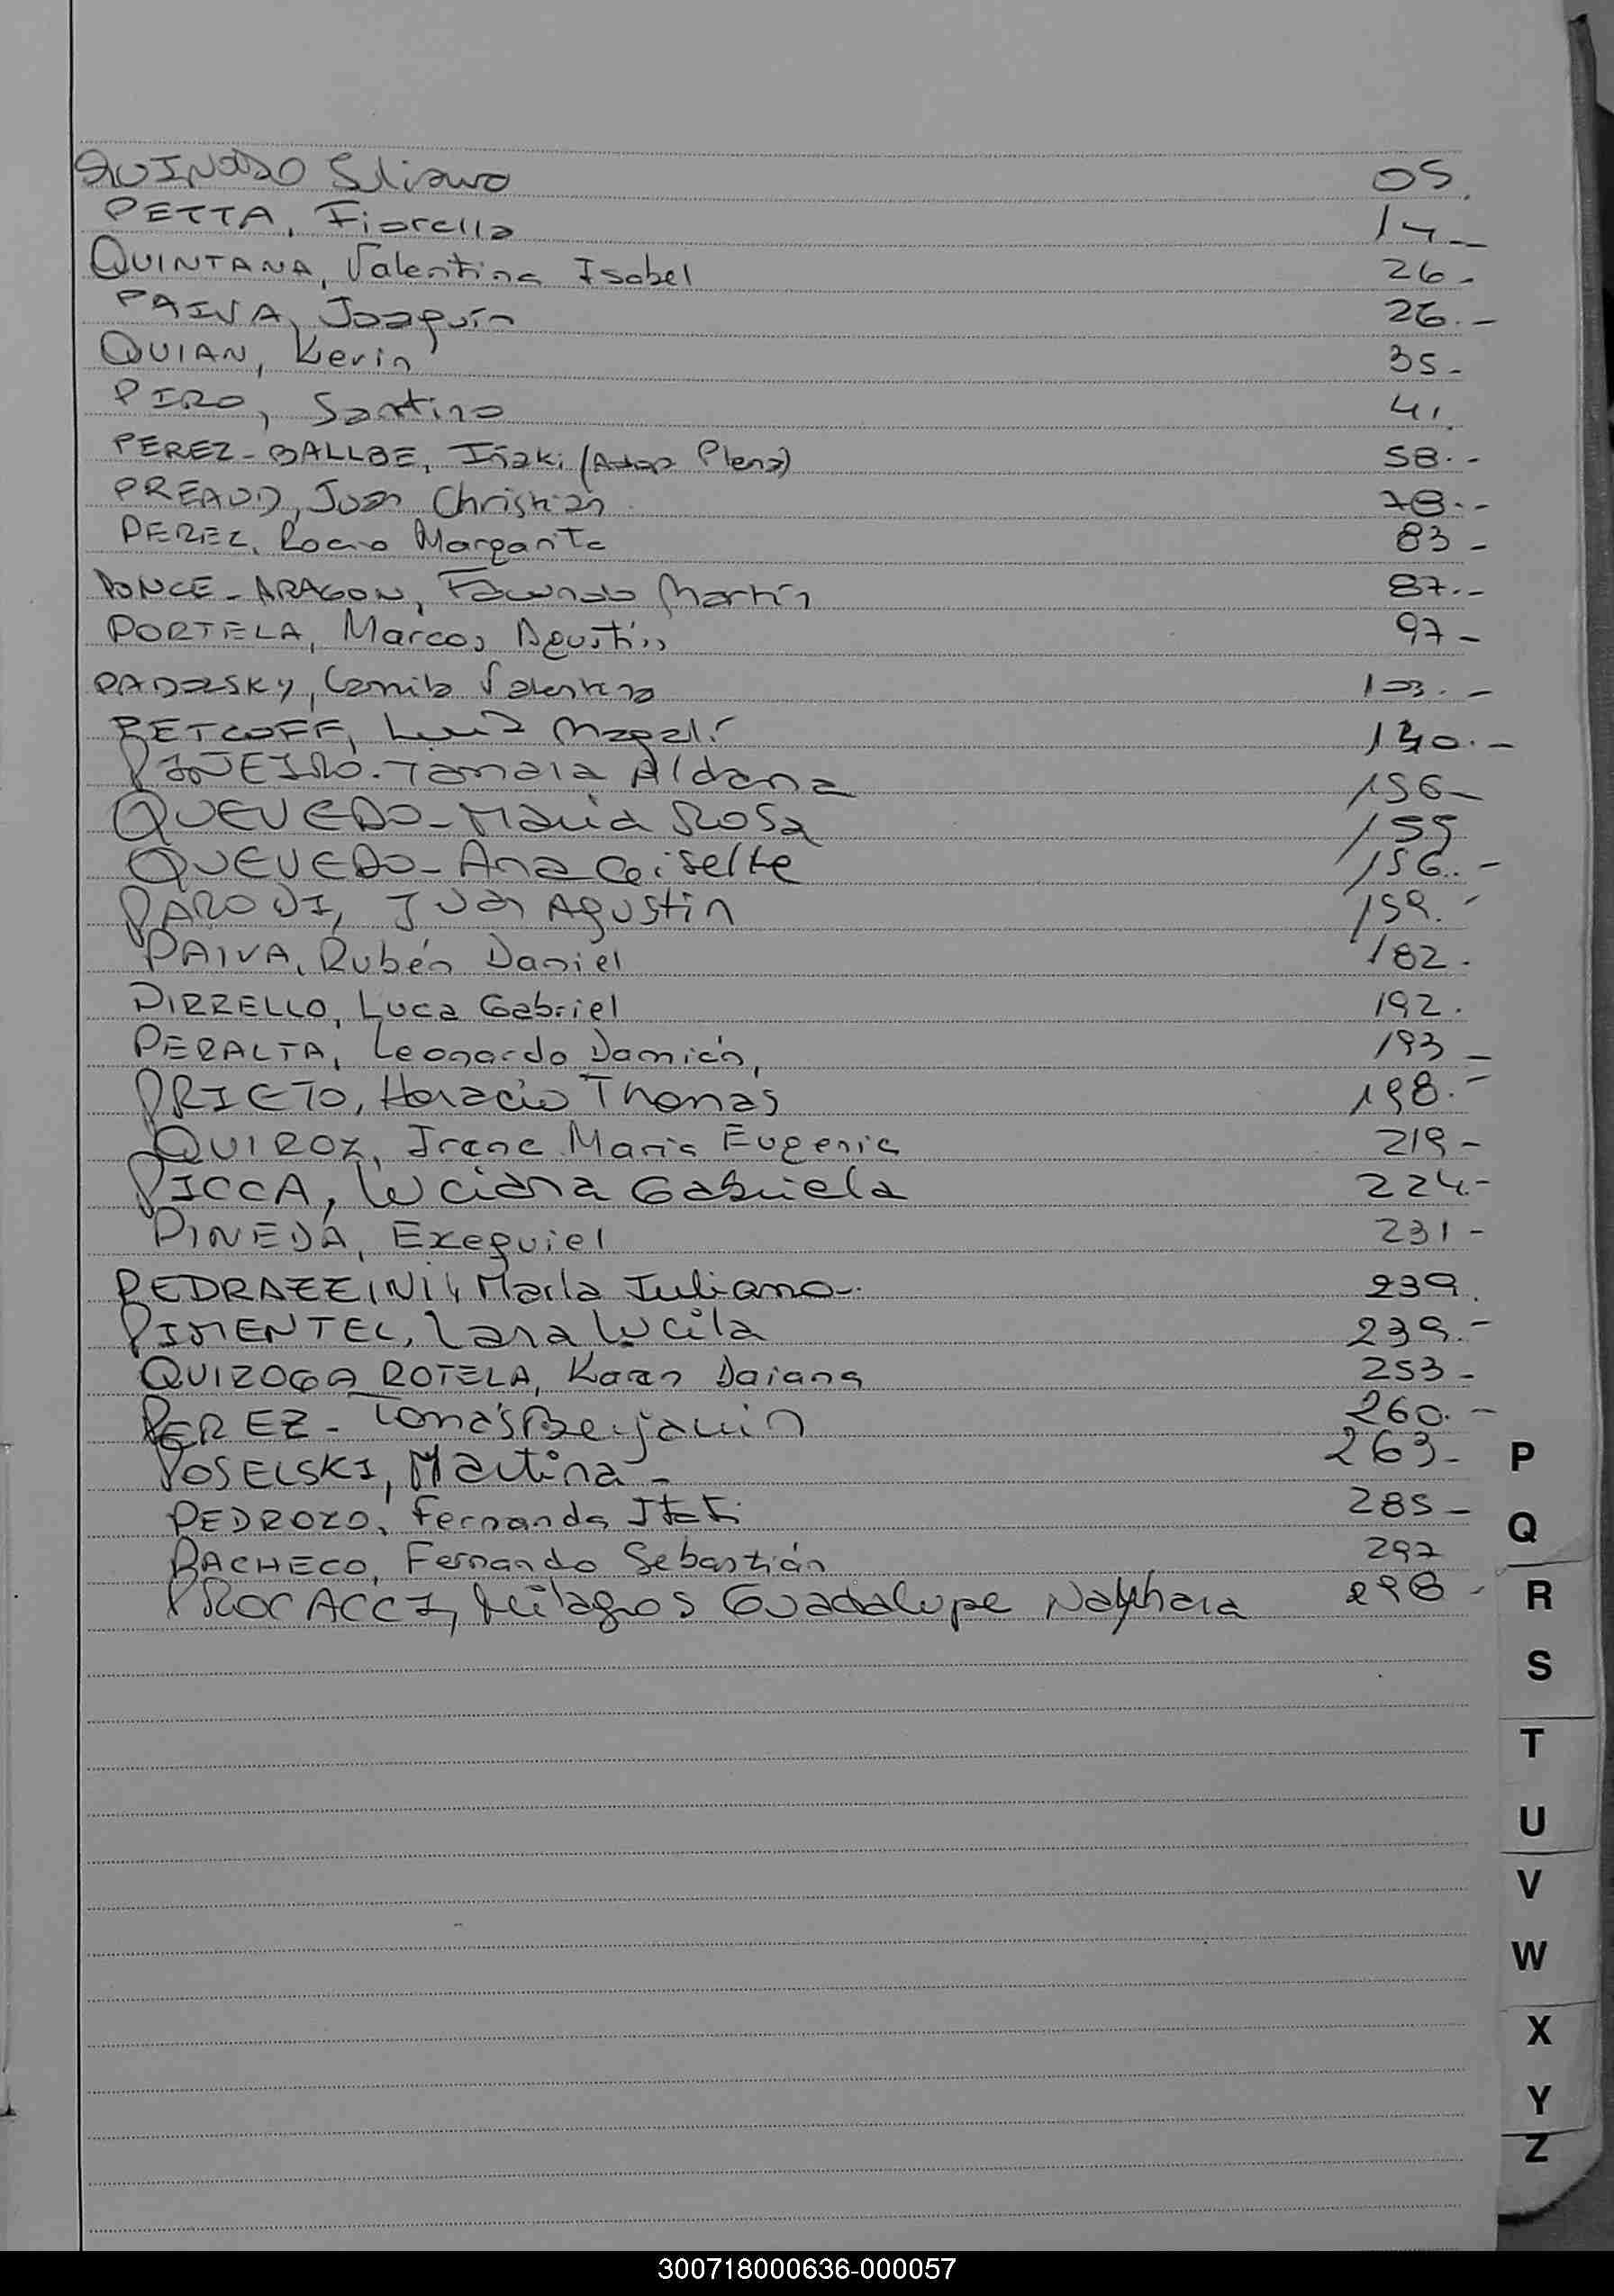 PETTA, Fiorella 14
QUINTANA, Valentina Isabel 26.
PAIVA, Joaquín 26.-
QUIAN, Kevin 35-
PIRO, Santino 41.
PEREZ-BALLBE, Iñaki (Adop Plena) 58.-
PREAUD, Juan Christián 78.-
PEREZ, Rocio Margarita 83-
PONCE-ARAGON, Facundo Martín 87.-
PORTELA, Marcos Agustín 97-
Camila Valentina 103.-
PETCOFF, Magalí 140.-
PIÑEIRO-Tamara Aldana 156-
QUEVEDO-Maria Rosa 155
QUEVEDO-Ana Giselle 156.-
PARODI, Juan Agustin 159.-
PAIVA, Rubén Daniel 182.
PIRRELLO, Luca Gabriel 192.
PERALTA, Leonardo Damián, 193-
PRIETO, Horacio Thomás 198.-
QUIROZ, Irene Maria Eugenia 219-
PICCA, Luciana Gabriela 224.-
PINEDA, Exequiel 231-
PEDRAZZINI, Marla Juliana. 239.
PIMENTEL, Lara Lucila 239.-
QUIROGA ROTELA, Karen Daiana 253-
PEREZ-Tomás Benjamin 260.-
POSELSKI, Martina- 263-
PEDROZO, Fernanda Itatí 285-
PACHECO, Fernando Sebastián 297
PROCACCI, Milagros Guadalupe 298-
P
Q
R
S
T
U
V
W
X
Y
Z
300718000636-000057